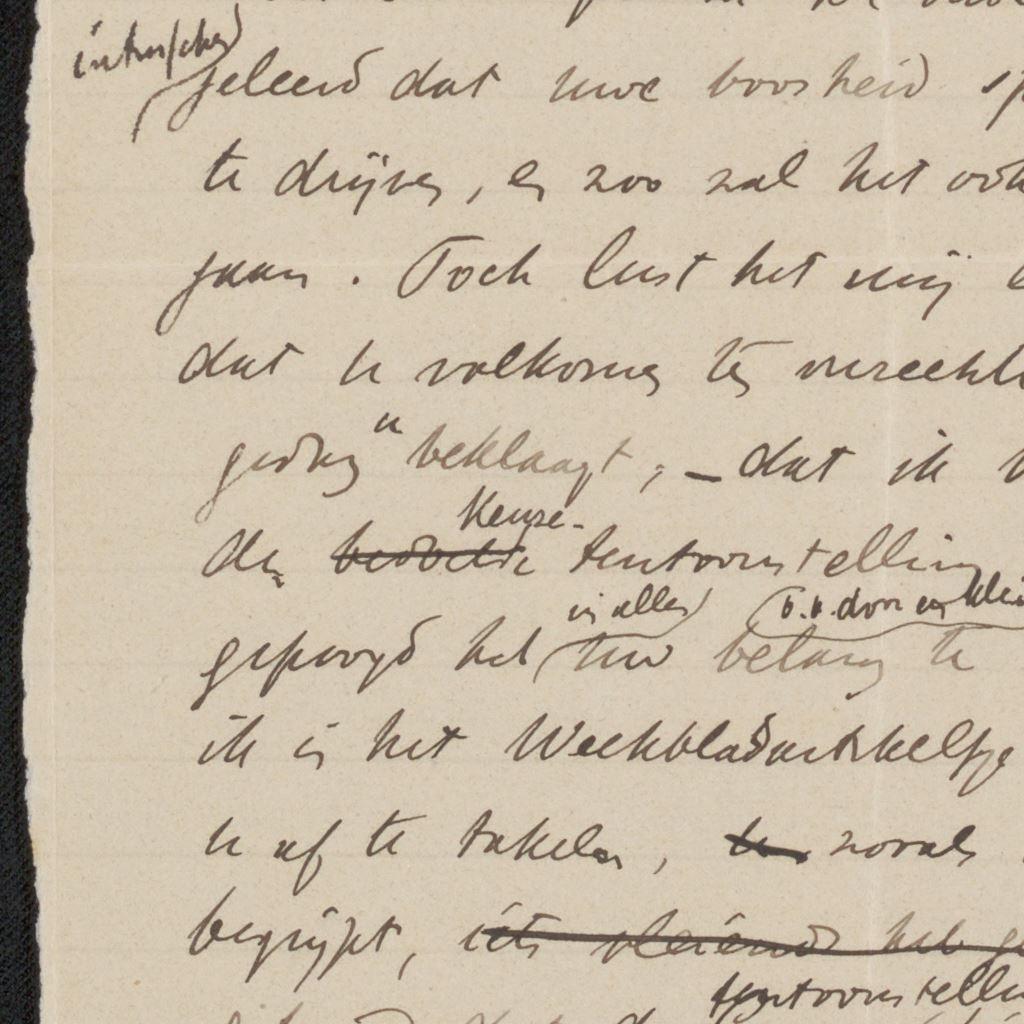 intusschen
geleerd dat uwe boosheid
te drijven, en zoo zal het ook
gaan. Toch lust het mij
dat u volkomen ten onrechte
gedrag u beklaagt, – dat ik
keuze-
den tentoonstelling
in alles o.a. door een klein
gepoogd heb uw belang te
ik in het Weekbladartikeltje
u af te takelen, zooals
begrijpt, iets vleiends heb
tentoonstelling